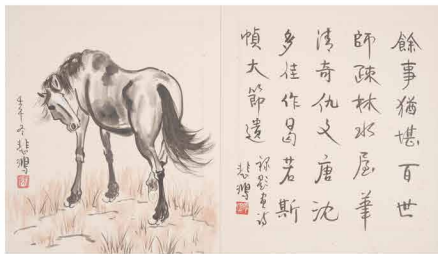 餘事猶堪百世
師疎林水屋華
清奇仇文唐沈
多佳作曷若斯
幀大節遺
悲鴻
悲鴻